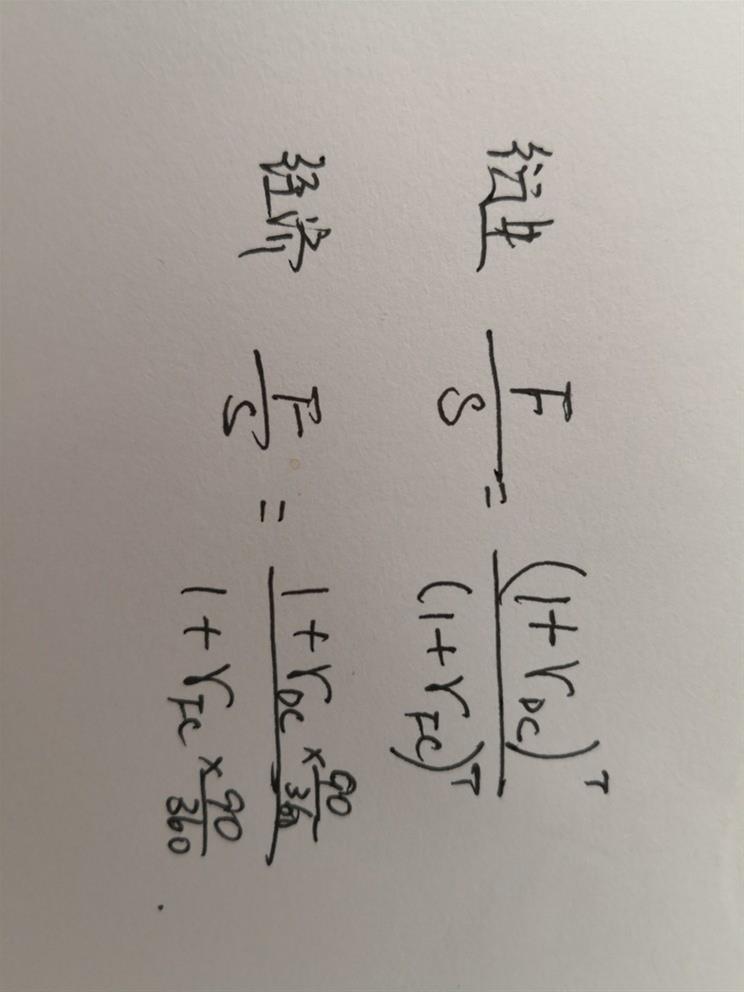 衍生 F/S = (1+r_DC)^T/(1+r_FC)^T
经济 F/S = 1+r_DC×90/360/1+r_FC×90/360